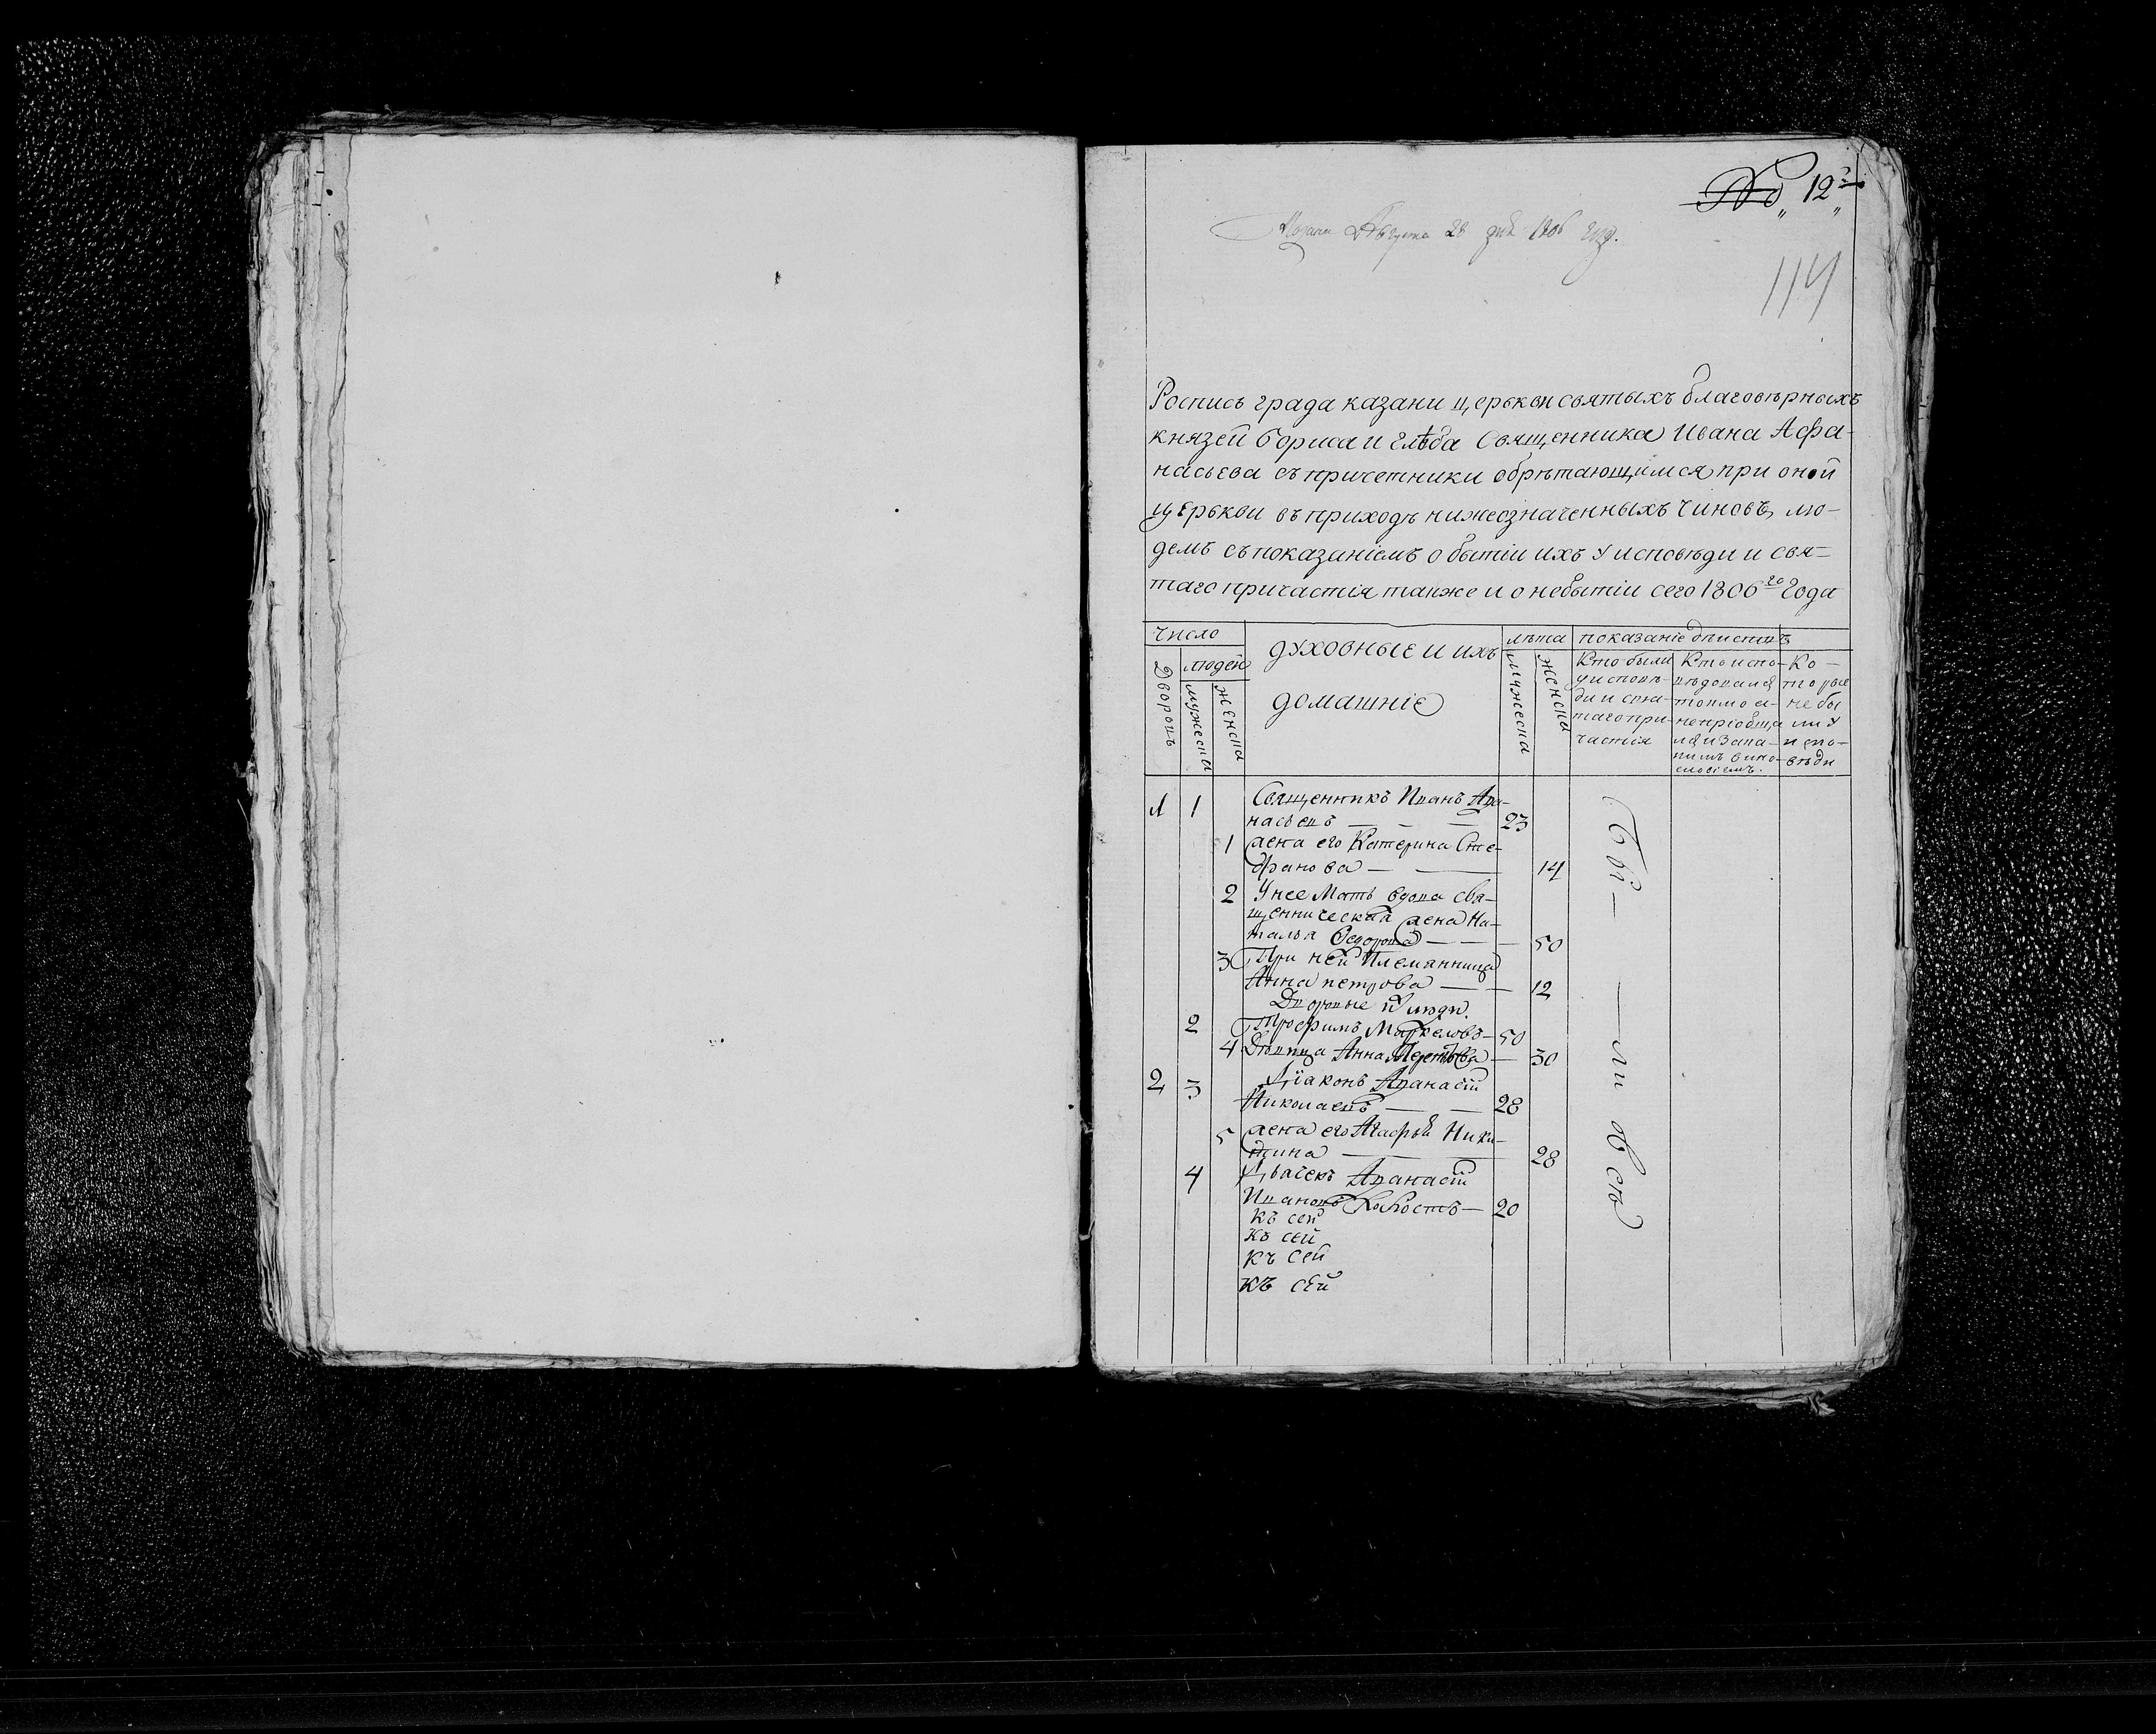 № 12й
Августа 28 дня 1806 году.
114
Роспись града казани церькви святыхъ благовѣрныхъ
князей бориса и глѣба Священника Ивана Афа-
насьева съ причетники обрѣтающимся при оной
церькви въ приходѣ нижеозначенныхъ чиновъ, лю-
демъ съ показаніемъ о бытіи ихъ у исповѣди и свя-
таго причастія также и о небытіи сего 1806го года
число
людей
Дворовъ
мужеска
женска
духовные и ихъ
домашніе
лѣта
мужеска
женска
показаніе дѣиствъ
Кто были
у исповѣ-
ди и свя-
таго при-
частія
Кто испо-
вѣдался
токмо а-
непріобща
лся и за ка-
кимъ вино-
словіемъ.
Ко-
торые
небы
ли у
испо-
вѣди
1 1 Священникъ Иванъ Афа-
насьевъ — — — 23
1 жена его Катерина Сте-
фанова — — 14
2 У нее Мать вдова свя-
щенническая жена На-
талья Федорова — — — 50
3 При ней Племянница
Анна петрова — — 12
Дворовые люди.
2 Трофимъ Маркеловъ — 50
4 Дѣвица Анна — 30
2 3 Діаконъ Афанасій
Николаевъ — — 28
5 жена его Агафья Ники-
тина — 28
4 Дьячекъ Афанасій
Ивановъ холостъ — 20
Бы — — ли всѣ
къ сей
къ сей
къ сей
къ сей